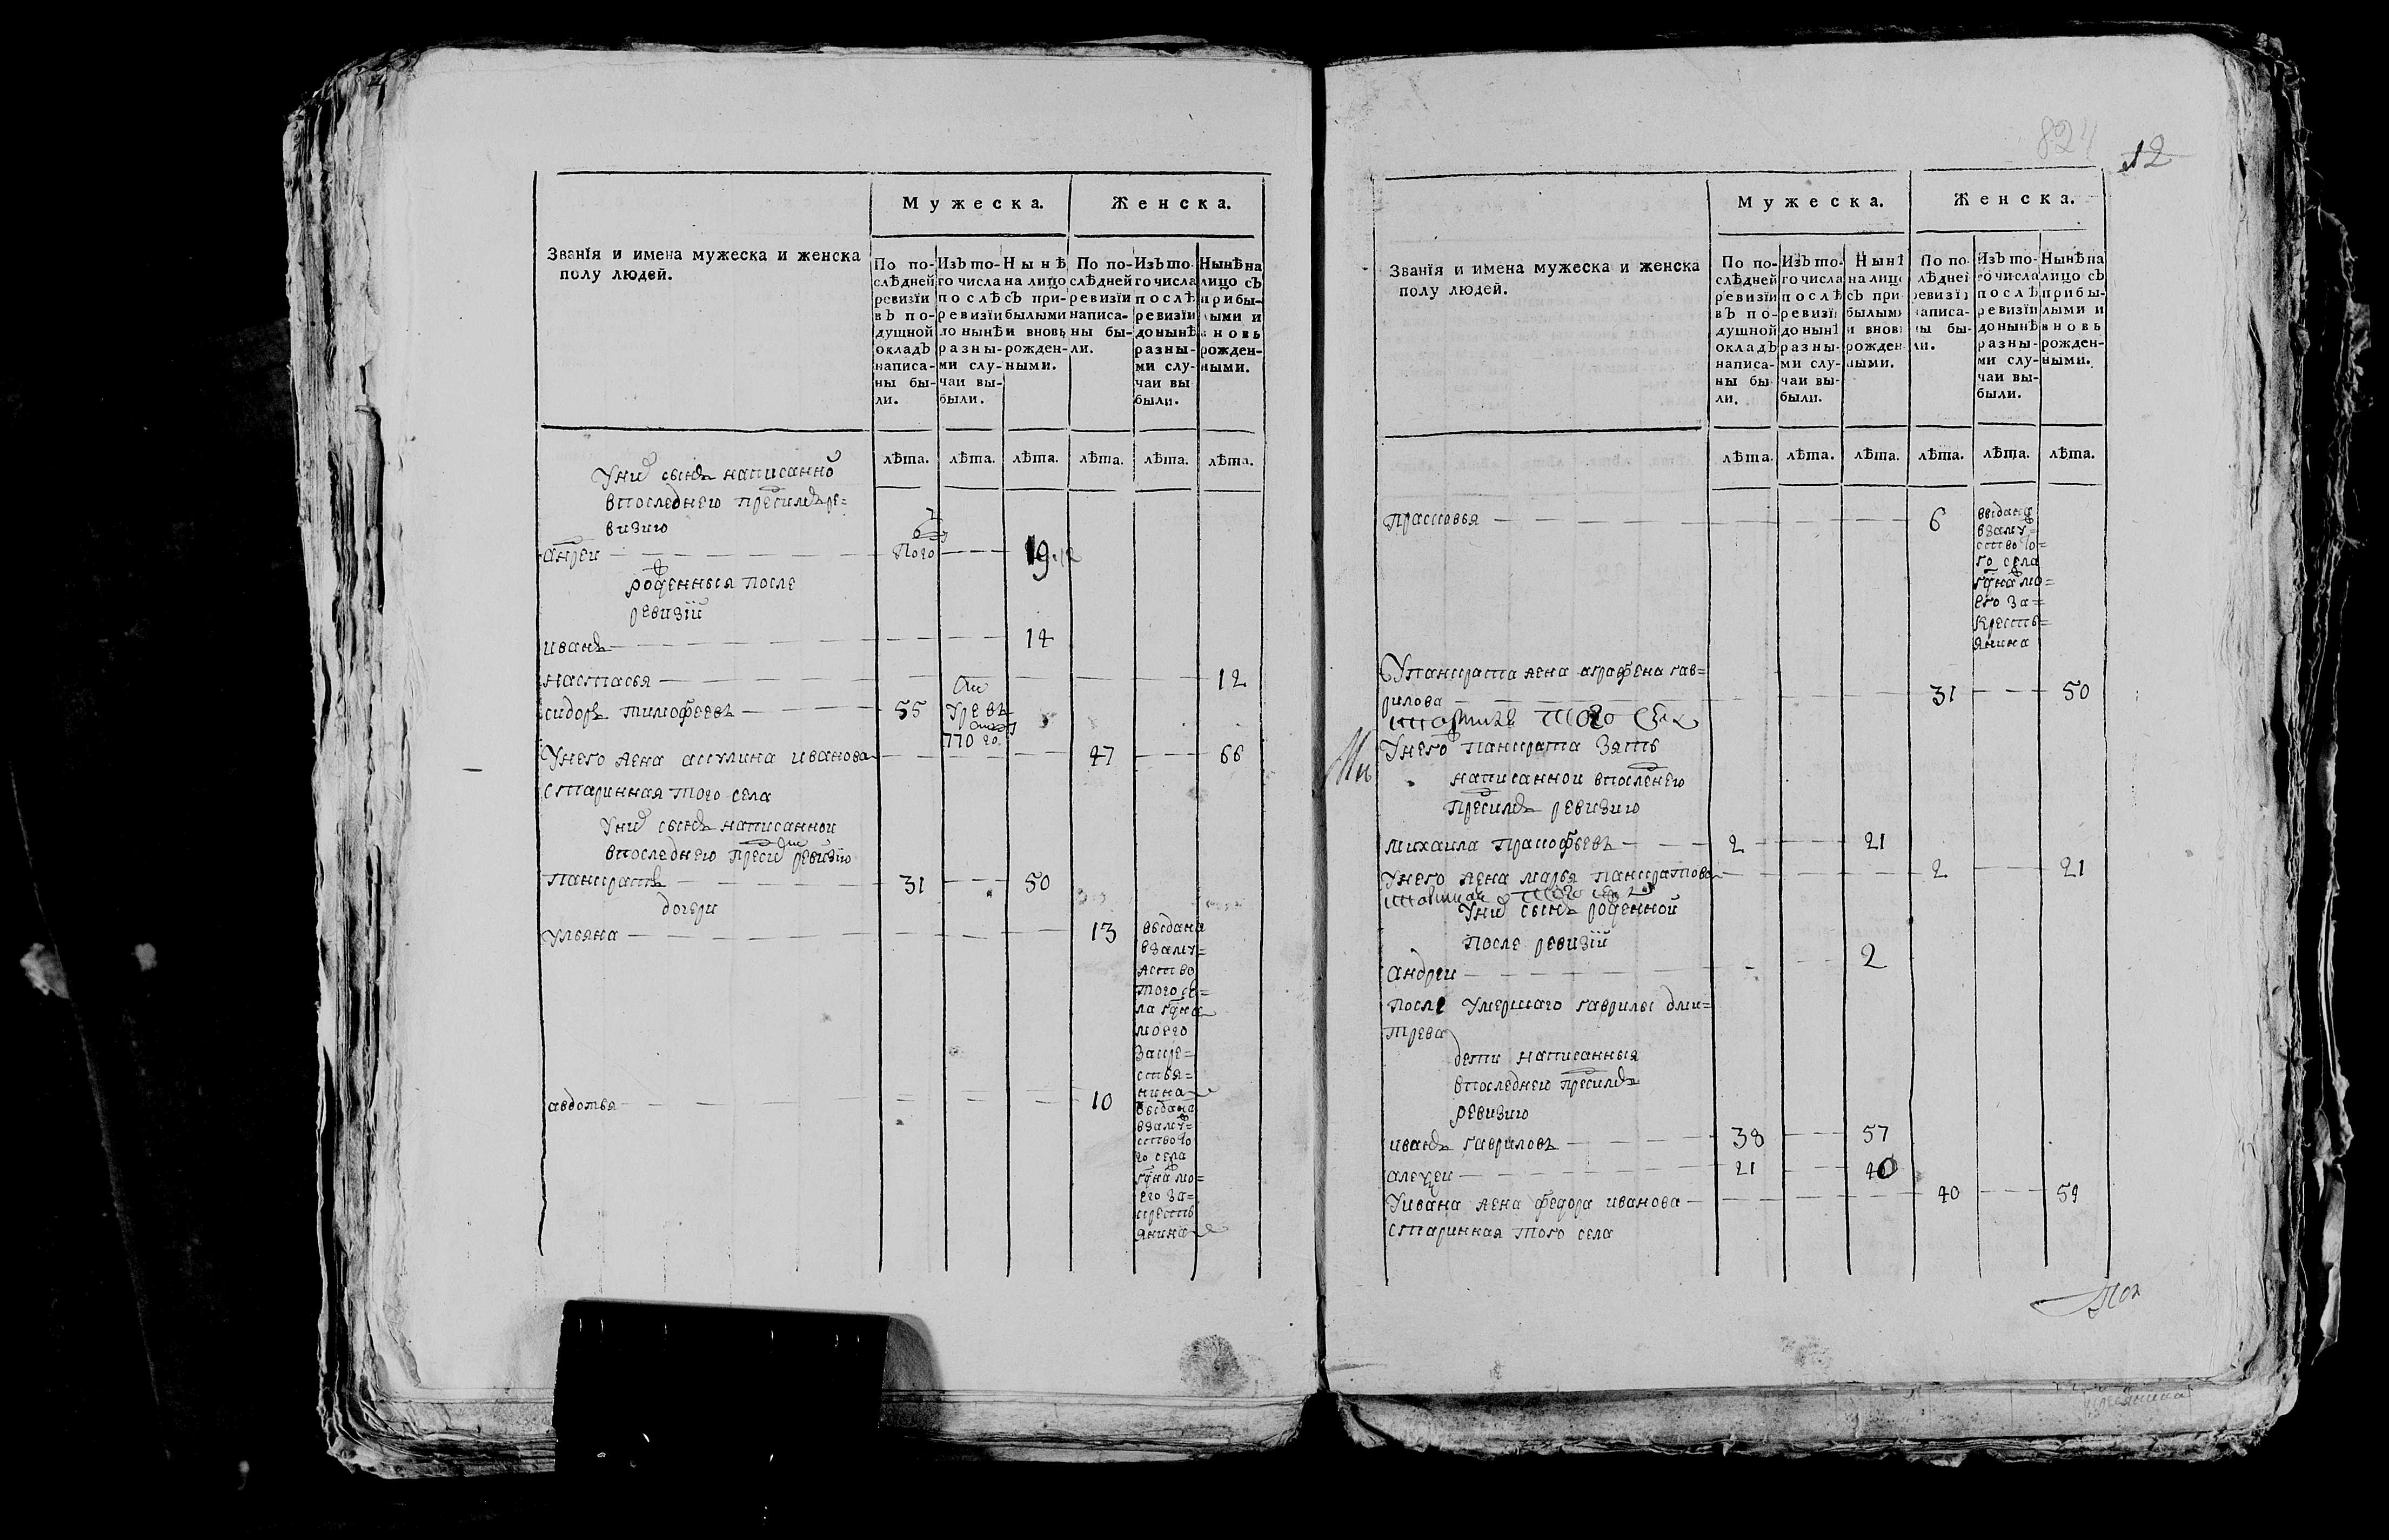 Званїя и имена мужеска и женска
полу людей.
Мужеска.
Женска.
По по-
слѣдней
ревизїи
въ по-
душной
окладъ
написа-
ны бы-
ли.
Изъ то-
го числа
послѣ
ревизїи
до нынѣ
разны-
ми слу-
чаи вы-
были.
Нынѣ
на лицо
съ при-
былыми
и вновь
рожден-
ными.
По по-
слѣдней
ревизїи
написа-
ны бы-
ли.
Изъ то-
го числа
послѣ
ревизїи
до нынѣ
разны-
ми слу-
чаи вы
были.
Нынѣ на
лицо съ
прибы-
лыми и
вновь
рожден-
ными.
лѣта. лѣта. лѣта. лѣта. лѣта. лѣта.
Уних сынъ написанно
впоследнею пресимъ ре=
визию
андреи 19
рожденныя после
ревизїи
иванъ 14
настасья 12
сидоръ тимофеевъ 55
Унего жена акулина иванова 47 66
старинная того села
Уних сынъ написаннои
впоследнею ревизию
панкратъ 31 50
дочери
ульяна 13 выдана
взаму=
жство
того се=
ла
моего
закре=
стья=
нина
авдотья 10 выдана
взаму=
жство то
го села
гдна мо=
его за=
кресть
янина
824
12
Званїя и имена мужеска и женска
полу людей.
Мужеска.
Женска.
По по-
слѣдней
ревизїи
въ по-
душной
окладъ
написа-
ны бы
ли.
Изъ то-
го числа
послѣ
ревизїи
до нынѣ
разны-
ми слу-
чаи вы-
были.
Нынѣ
на лицо
съ при
былыми
и вновь
рожден
ными.
По по-
слѣдней
ревизїи
написа-
ны бы-
ли.
Изъ то-
го числа
послѣ
ревизїи
до нынѣ
разны-
ми слу-
чаи вы-
были.
Нынѣ на
лицо съ
прибы-
лыми и
вновь
рожден-
ными.
лѣта. лѣта. лѣта. лѣта. лѣта. лѣта.
прасковья 6 выдана
взаму=
жство то=
го села
гдна мо=
его за=
кресть=
янина
Упанкрата жена аграфена гав=
рилова 31 50
Унего панкрата зять
написаннои впоследнею
пресимъ ревизию
михаила пракофьевъ 2 21
Унего жена марья панкратова 2 21
Уних сынъ рожденной
после ревизїи
андреи 2
После умершаго гаврилы дми=
трева
дети написанныя
впоследнею пресимъ
ревизию
иванъ гавриловъ 38 57
алексеи 21 40
Уивана жена федора иванова 40 59
старинная того села